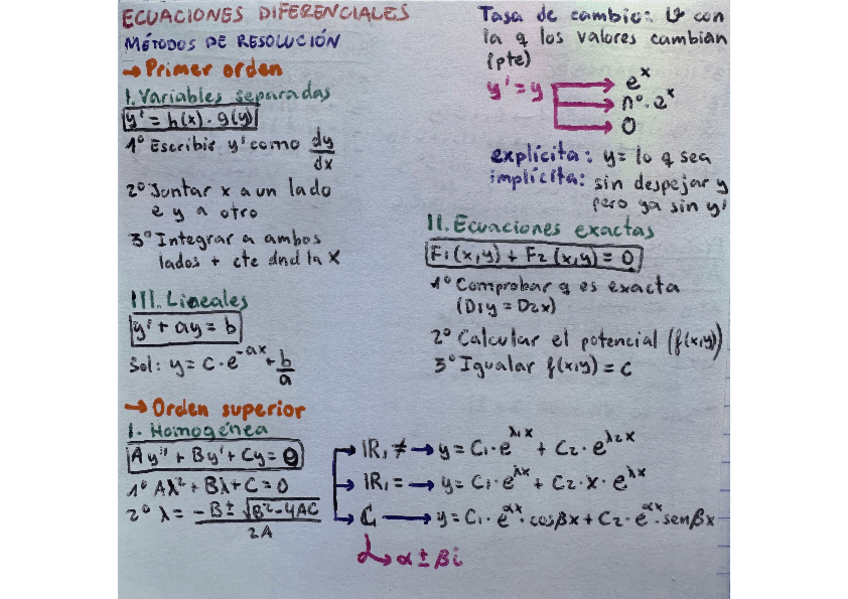 ECUACIONES DIFERENCIALES
MÉTODOS DE RESOLUCIÓN
→ Primer orden
I. Variables separadas
y' = h(x) · g(y)
1º Escribir y' como dy/dx
2º Juntar x a un lado
e y a otro
3º Integrar a ambos
lados + cte dnd la x
Tasa de cambio: V con
la q los valores cambian
(pte)
y' = y → eˣ
→ nº · eˣ
→ 0
explícita: y = lo q sea
implícita: sin despejar y
pero ya sin y'
II. Ecuaciones exactas
F1(x,y) + F2(x,y) = 0
1º Comprobar q es exacta
(D1y = D2x)
2º Calcular el potencial (f(x,y))
3º Igualar f(x,y) = C
III. Lineales
y' + ay = b
Sol: y = C · e^-ax + b/a
→ Orden superior
I. Homogénea
Ay'' + By' + Cy = 0
1º Aλ² + Bλ + C = 0
2º λ = -B ± √B²-4AC / 2A
→ ℝ, ≠ → y = C1 · e^λ1x + C2 · e^λ2x
→ ℝ, = → y = C1 · e^λx + C2 · x · e^λx
→ ℂ → y = C1 · e^αx · cosβx + C2 · e^αx · senβx
↳ α ± βi